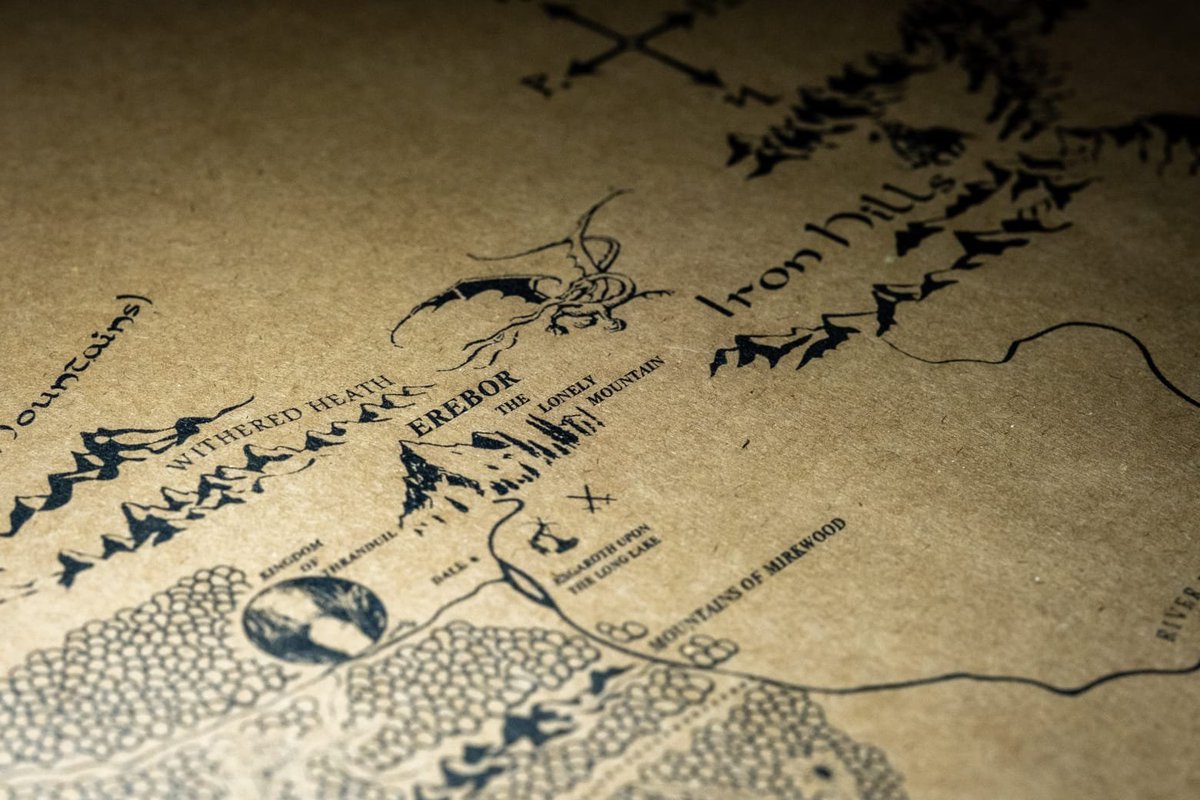 Iron Hills
Mountains)
WITHERED HEATH
EREBOR
THE LONELY
MOUNTAIN
KINGDOM
OF
THRANDUIL
DALE
ESGAROTH UPON
THE LONG LAKE
MOUNTAINS OF MIRKWOOD
RIVER